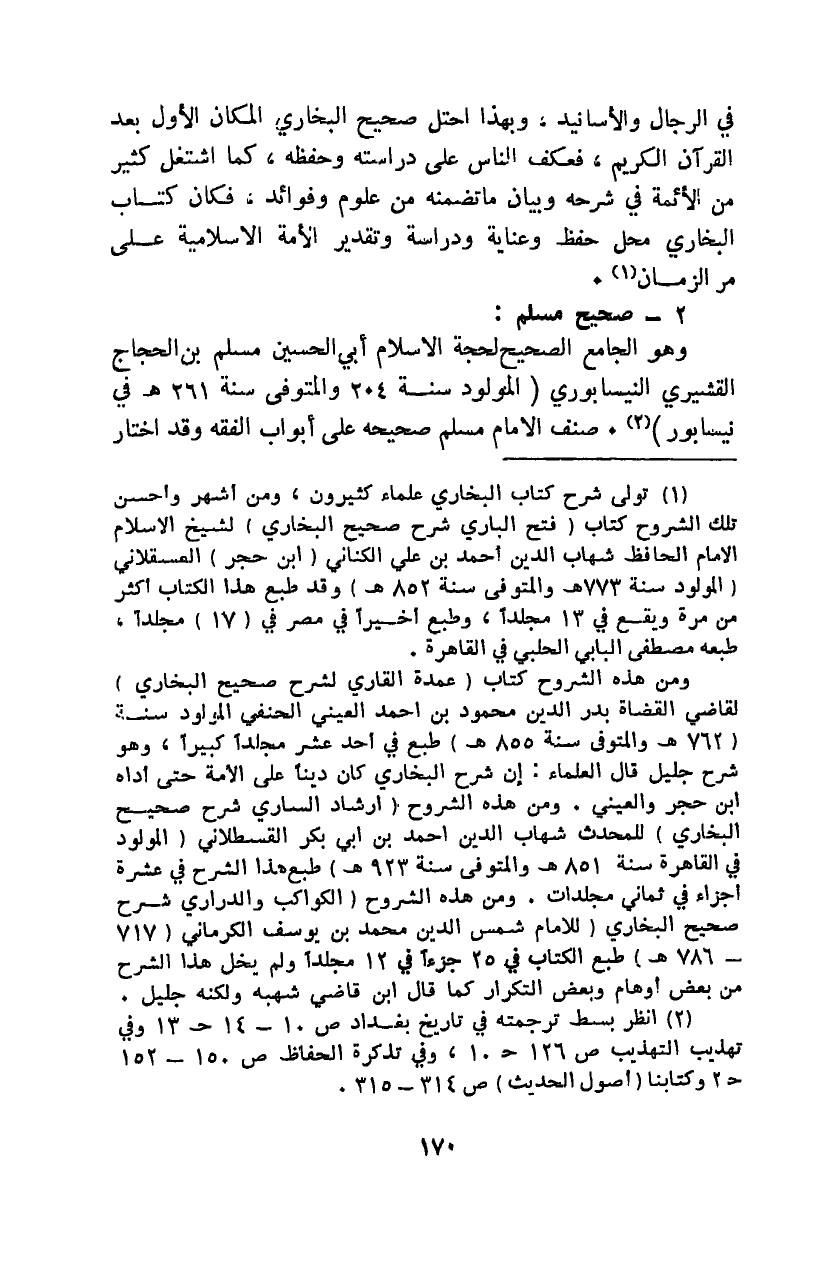 في الرجال والأسانيد ، وبهذا احتل صحيح البخاري المكان الأول بعد
القرآن الكريم ، فعكف الناس على دراسته وحفظه ، كما اشتغل كثير
من الأئمة في شرحه وبيان ماتضمنه من علوم وفوائد ، فكان كتـــاب
البخاري محل حفظ وعناية ودراسة وتقدير الأمة الاسلامية عـــلى
مر الزمـــان(١) .
٢ ــ صحيح مسلم :
وهو الجامع الصحيح لحجة الاسلام أبي الحسين مسلم بن الحجاج
القشيري النيسابوري ( المولود سنـــة ٢٠٤ والمتوفى سنة ٢٦١ هـ في
نيسابور )(٢) . صنف الامام مسلم صحيحه على أبواب الفقه وقد اختار
(١) تولى شرح كتاب البخاري علماء كثيرون ، ومن أشهر وأحسن
تلك الشروح كتاب ( فتح الباري شرح صحيح البخاري ) لشيخ الاسلام
الامام الحافظ شهاب الدين أحمد بن علي الكناني ( ابن حجر ) العسقلاني
( المولود سنة ٧٧٣هـ والمتوفى سنة ٨٥٢ هـ ) وقد طبع هذا الكتاب أكثر
من مرة ويقـــع في ١٣ مجلداً ، وطبع أخـــيراً في مصر في ( ١٧ ) مجلداً ،
طبعه مصطفى البابي الحلبي في القاهرة .
ومن هذه الشروح كتاب ( عمدة القاري لشرح صحيح البخاري )
لقاضي القضاة بدر الدين محمود بن احمد العيني الحنفي المولود سنـــة
( ٧٦٢ هـ والمتوفى سنة ٨٥٥ هـ ) طبع في أحد عشر مجلداً كبيراً ، وهو
شرح جليل قال العلماء : إن شرح البخاري كان ديناً على الأمة حتى أداه
ابن حجر والعيني . ومن هذه الشروح ( ارشاد الساري شرح صحيـــح
البخاري ) للمحدث شهاب الدين احمد بن ابي بكر القسطلاني ( المولود
في القاهرة سنة ٨٥١ هـ والمتوفى سنة ٩٢٣ هـ ) طبع هذا الشرح في عشرة
أجزاء في ثماني مجلدات . ومن هذه الشروح ( الكواكب والدراري شـــرح
صحيح البخاري ( للامام شمس الدين محمد بن يوسف الكرماني ( ٧١٧
ــ ٧٨٦ هـ ) طبع الكتاب في ٢٥ جزءاً في ١٢ مجلداً ولم يخل هذا الشرح
من بعض أوهام وبعض التكرار كما قال ابن قاضي شهبه ولكنه جليل .
(٢) انظر بسط ترجمته في تاريخ بغداد ص ١٠ ــ ١٤ حـ ١٣ وفي
تهذيب التهذيب ص ١٢٦ حـ ١٠ ، وفي تذكرة الحفاظ ص ١٥٠ ــ ١٥٢
حـ ٢ وكتابنا ( أصول الحديث ) ص ٣١٤ ــ ٣١٥ .
١٧٠